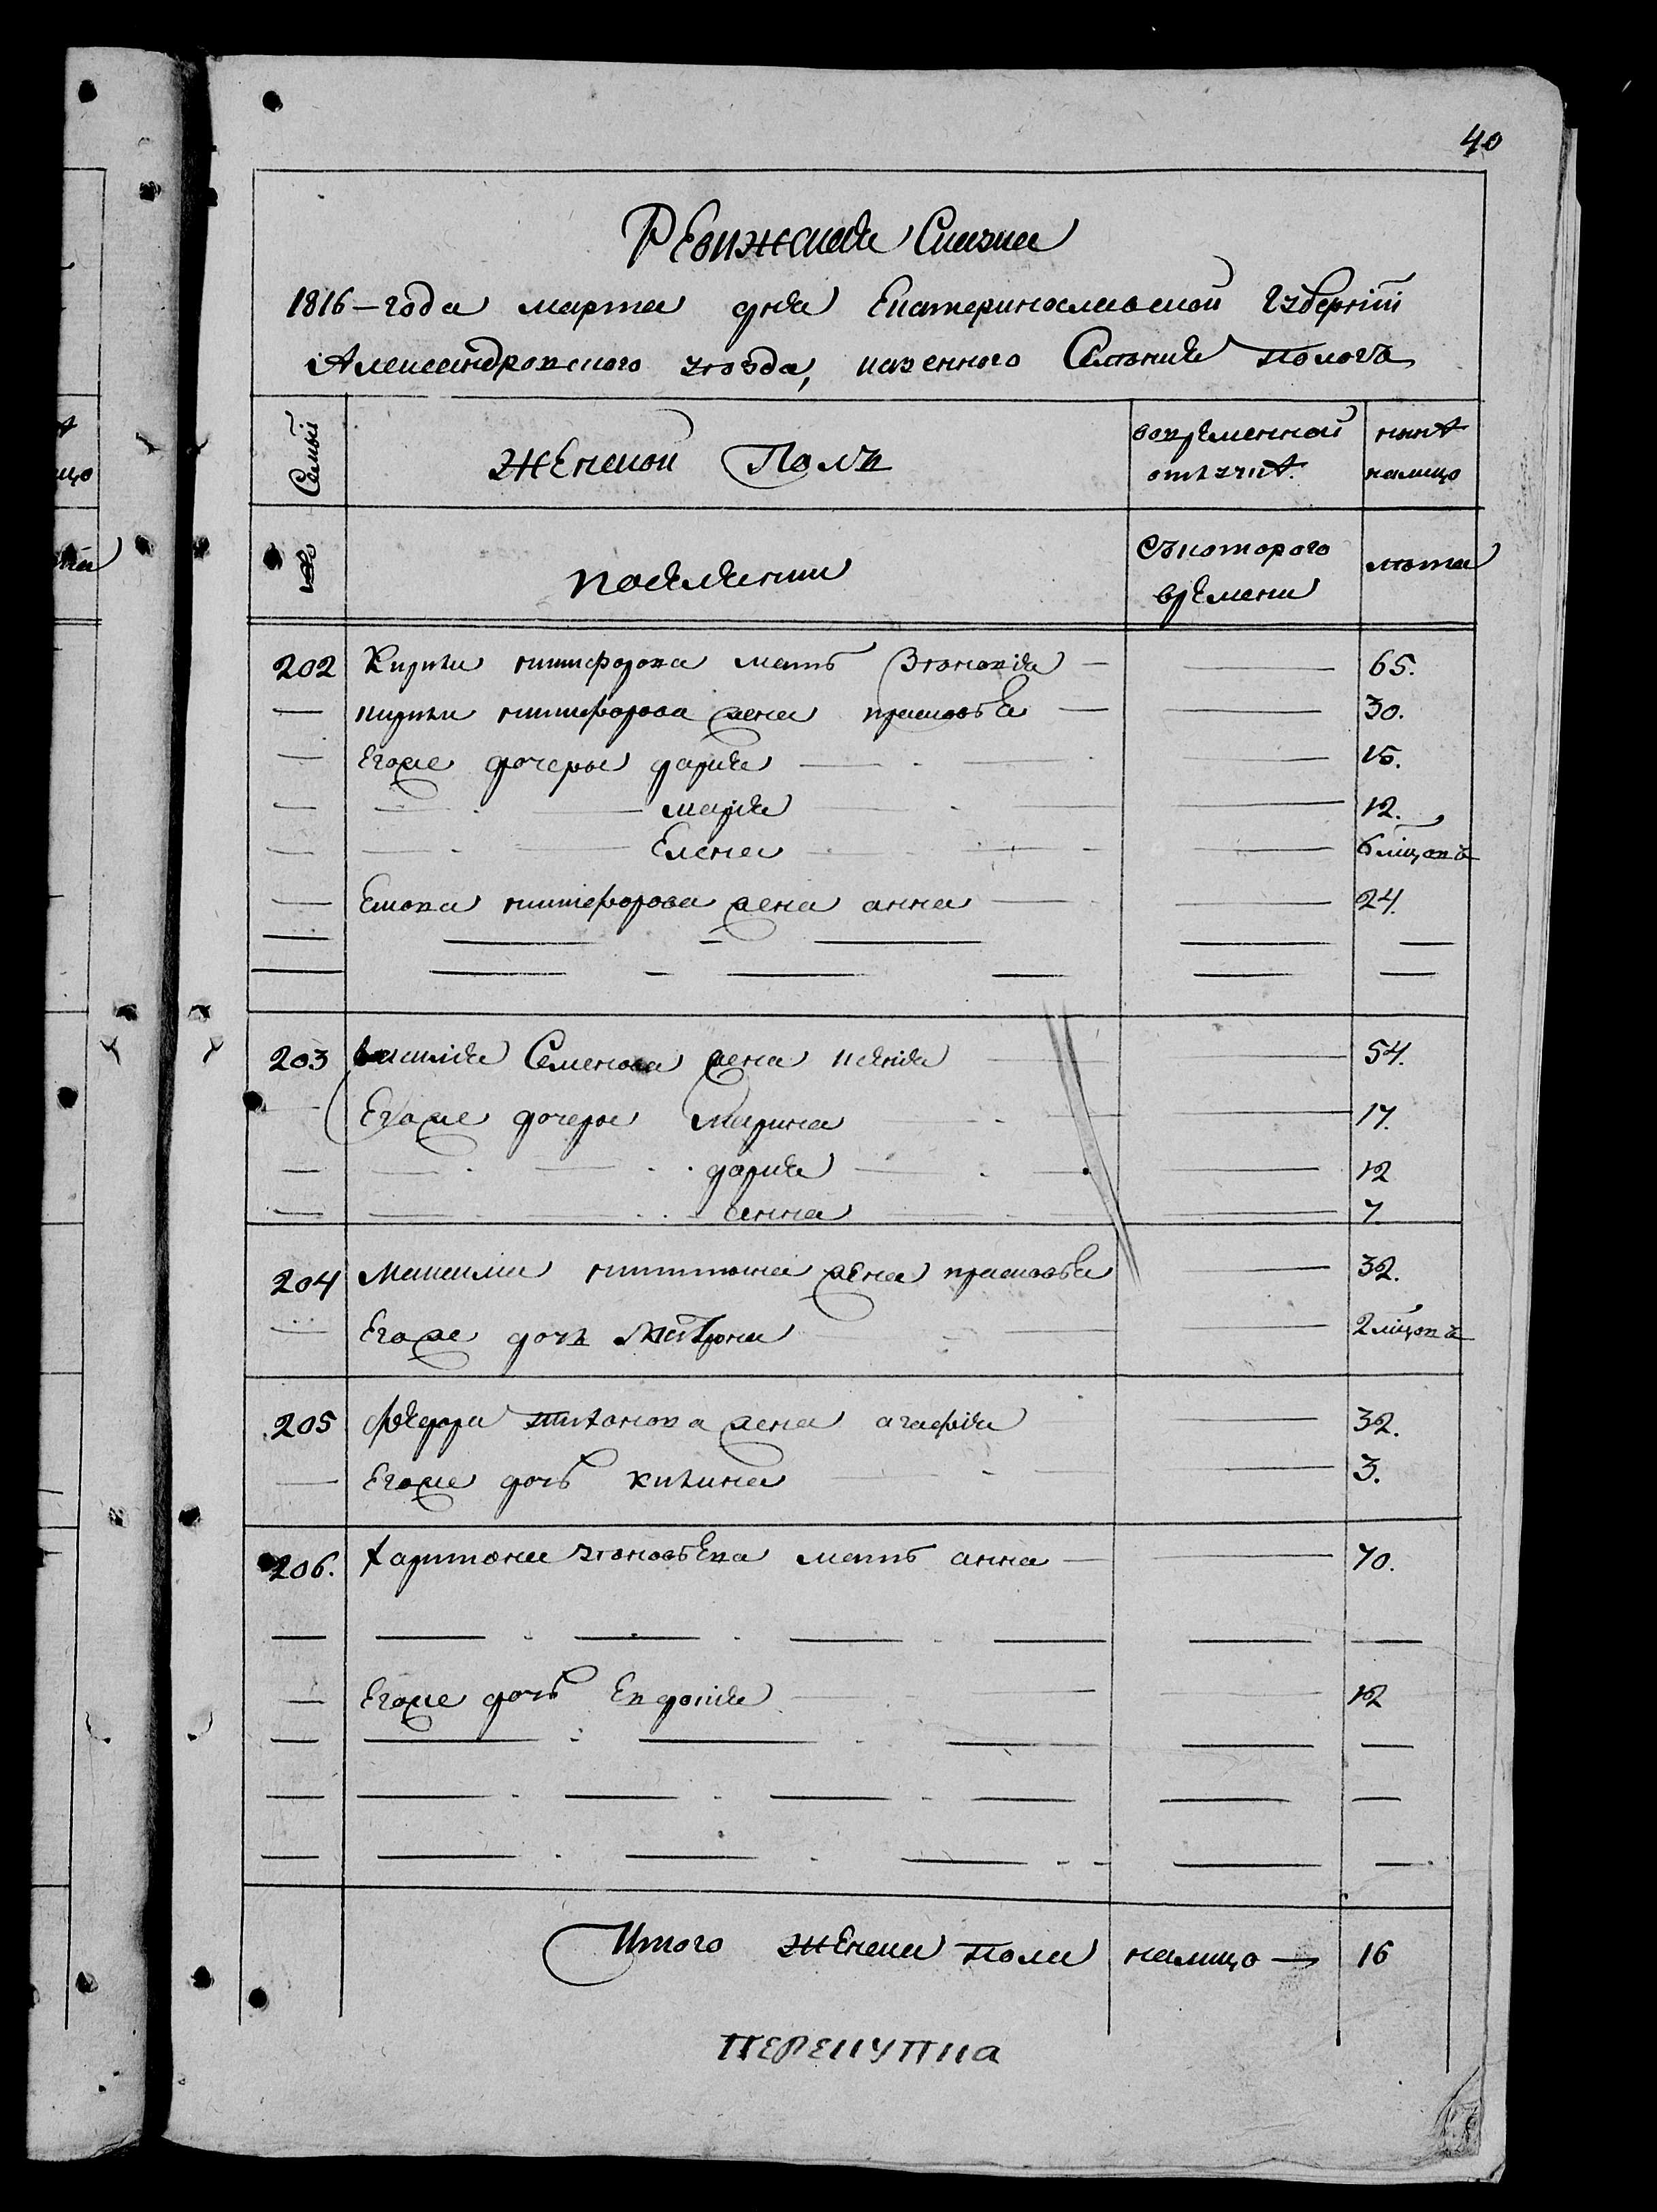 40
Ревижская Сказка
1816-года марта дня Екатеринославской губерніи
Александровского уѣзда, казенного Селенія Пологъ
Семьи
Женской Полъ
вовременной
отлучкѣ.
нынѣ
налицо
№
поселянки
Съкоторого
времени
лѣта
202 Кирила никифорова мать 65.
кирила никифорова жена прасковья 30.
Егоже дочеры дарія 15.
марія 12.
Елена 6 міцовъ
никифорова жена анна 24.
203 василія Семенова жена ксенія 54.
Егоже дочеры Марина 17.
дарія 12
анна 7
204 Максима никитина жена прасковья 32.
Егоже дочъ Матрона 2 міцовъ
205 Федора тихонова жена агафія 32.
Егоже дочь килина 3.
206. Харитона зѣновьева мать анна 70.
Егоже дочь Евдокія 12
Итого женска пола налицо 16
ПЕРЕКУПКА